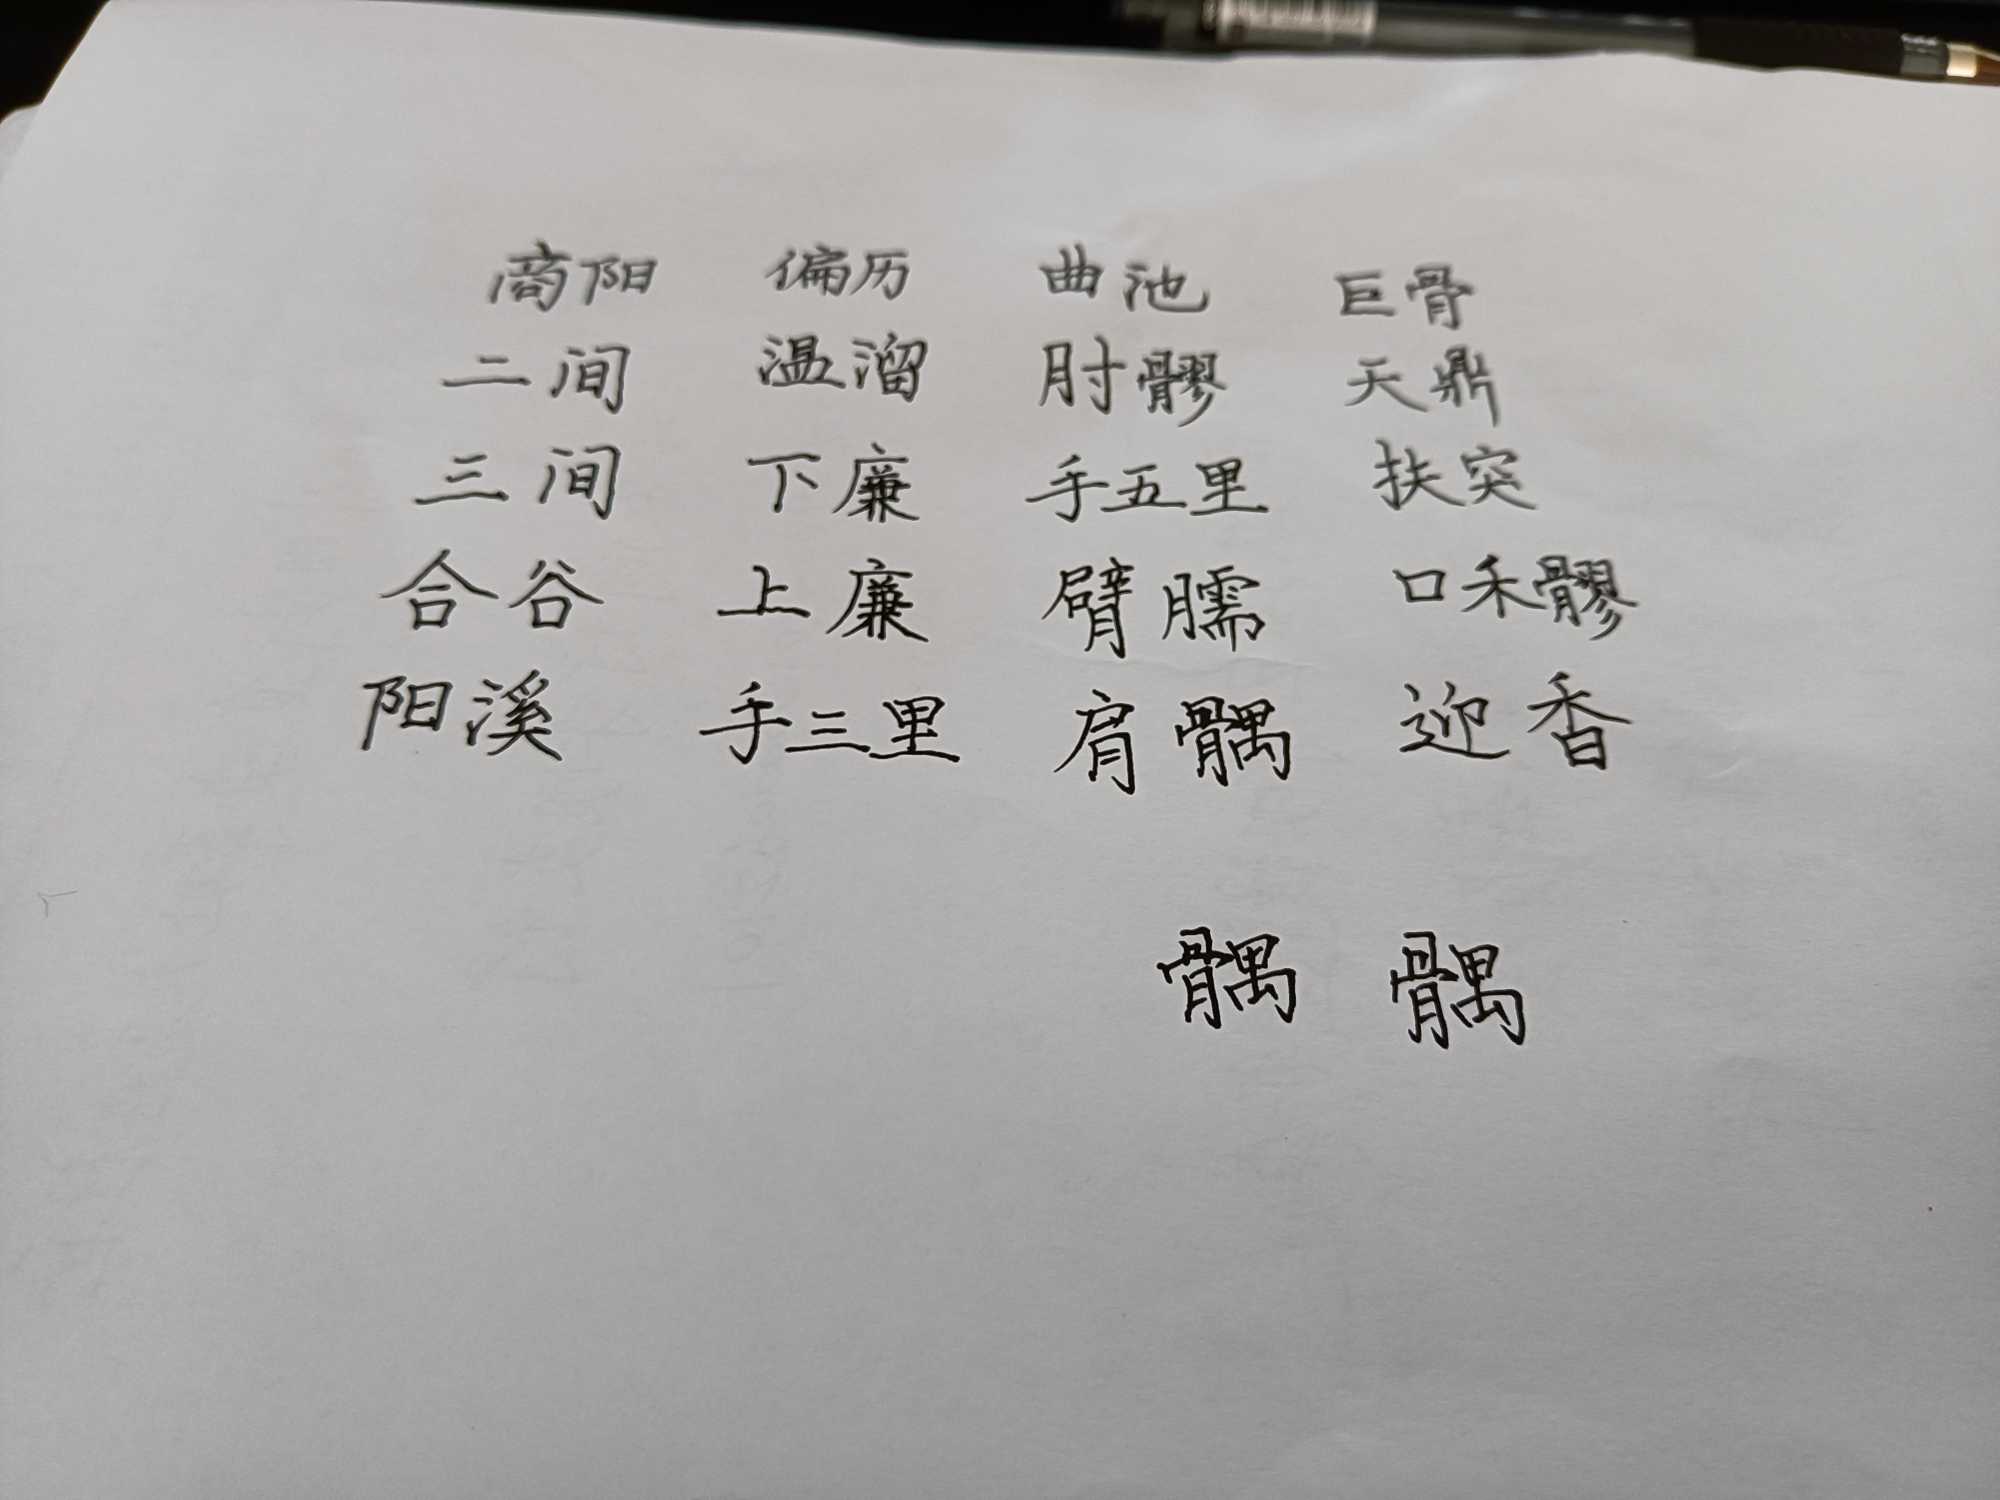 商阳 偏历 曲池 巨骨
二间 温溜 肘髎 天鼎
三间 下廉 手五里 扶突
合谷 上廉 臂臑 口禾髎
阳溪 手三里 肩髃 迎香
髃 髃